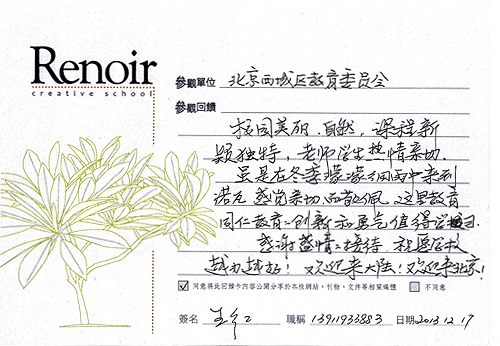 Renoir
creative school
參觀單位 北京西城区教育委员会
參觀回饋
校园美丽、自然，课程新
颖独特，老师学生热情亲切.
虽是在冬季濛濛细雨中来到
诺瓦 感觉亲切而敬佩，这里教育
同仁教育创新和勇气值得学习.
感谢盛情接待 祝愿学校
越办越好！欢迎来大陆！欢迎来北京！
同意將此回饋卡內容公開分享於本校網站、刊物、文件等相關媒體 不同意
簽名 職稱 13911933883 日期 2013.12.17